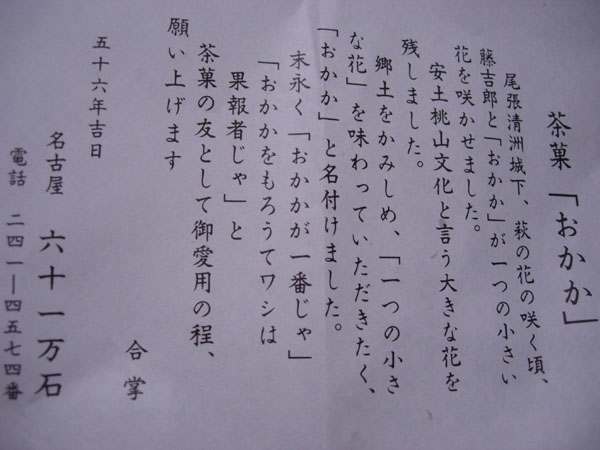 茶菓「おかか」
尾張清洲城下、萩の花の咲く頃、
藤吉郎と「おかか」が一つの小さい
花を咲かせました。
安土桃山文化と言う大きな花を
残しました。
郷土をかみしめ、「一つの小さ
な花」を味わっていただきたく、
「おかか」と名付けました。
末永く「おかかが一番じゃ」
「おかかをもろうてワシは
果報者じゃ」と
茶菓の友として御愛用の程、
願い上げます
合掌
五十六年吉日
名古屋 六十一万石
電話 二四一―四五七四番